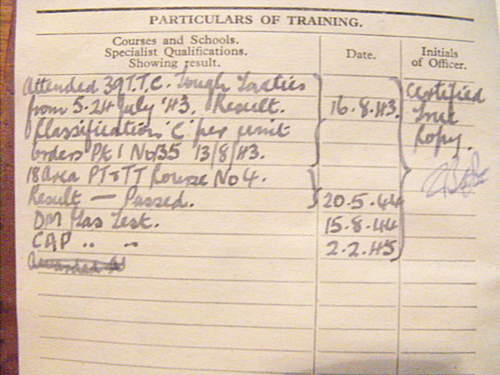 PARTICULARS OF TRAINING.
Courses and Schools.
Specialist Qualifications.
Showing result.
Date.
Initials
of Officer.
Attended 39 T.T.C. Tough Tactics
from 5-24 July '43. Result.
Classification 'C' per unit
orders Pt 1 No 135 13/8/43.
16.8.43.
18 Area PT & TT Course No 4.
Result — Passed.
20.5.44
DM Gas Test.
15.8.44
CAP " "
2.2.45
Awarded
Certified
True
Copy.